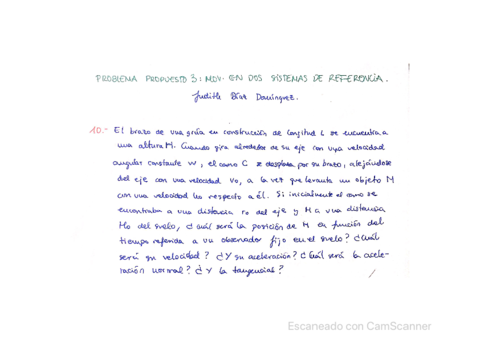 PROBLEMA PROPUESTO 3: MOV. EN DOS SISTEMAS DE REFERENCIA.
Judith Díaz Domínguez.
10.- El brazo de una grúa en construcción de longitud L se encuentra a
una altura H. Cuando gira alrededor de su eje con una velocidad
angular constante w, el carro C se desplaza por su brazo, alejándose
del eje con una velocidad vo, a la vez que levanta un objeto M
con una velocidad respecto a él. Si inicialmente el carro se
encontraba a una distancia ro del eje y M a una distancia
Ho del suelo, ¿cuál será la posición de M en función del
tiempo referida a un observador fijo en el suelo? ¿Cuál
será su velocidad? ¿Y su aceleración? ¿Cuál será la acele-
ración normal? ¿Y la tangencial?
Escaneado con CamScanner